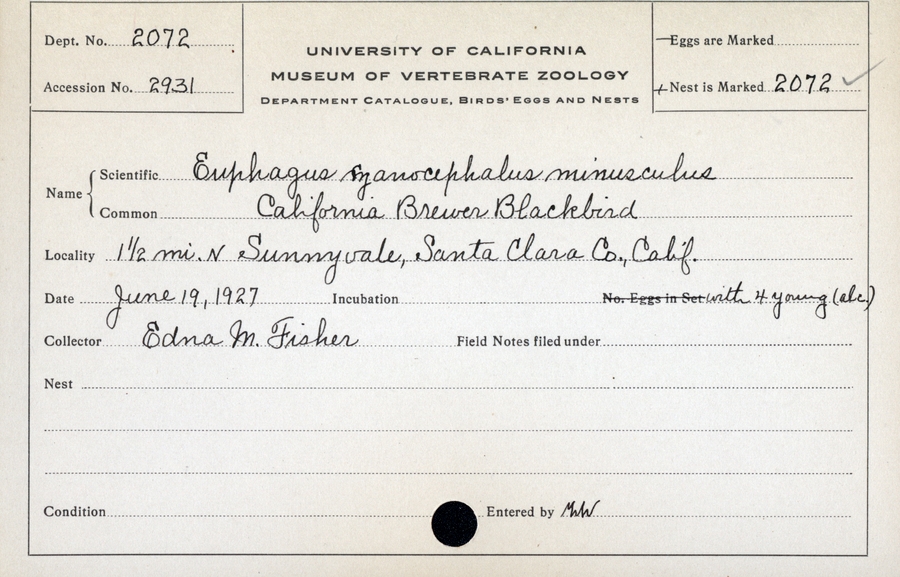 Dept. No. 2072
Accession No. 2931
UNIVERSITY OF CALIFORNIA
MUSEUM OF VERTEBRATE ZOOLOGY
DEPARTMENT CATALOGUE, BIRDS' EGGS AND NESTS
Eggs are Marked
+ Nest is Marked 2072 ✓
Name
Scientific Euphagus cyanocephalus minusculus
Common California Brewer Blackbird
Locality 1 1/2 mi. N Sunnyvale, Santa Clara Co., Calif.
Date June 19, 1927 Incubation No. Eggs in Set with 4 young (alc.)
Collector Edna M. Fisher Field Notes filed under
Nest
Condition Entered by